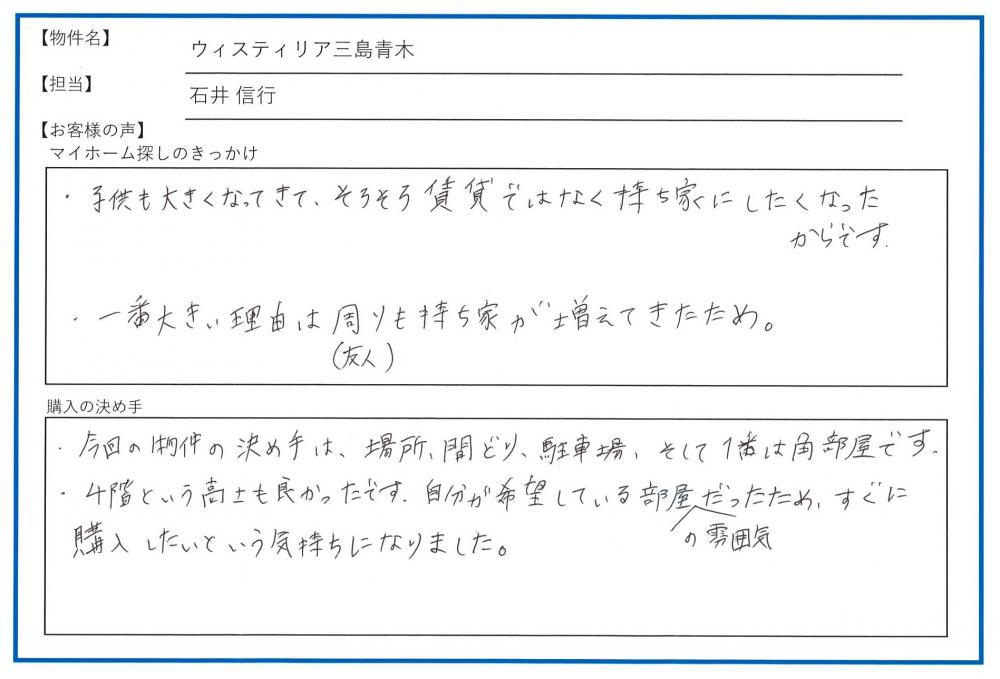 【物件名】
ウィスティリア三島青木
【担当】
石井 信行
【お客様の声】
マイホーム探しのきっかけ
・子供も大きくなってきて、そろそろ賃貸ではなく持ち家にしたくなった
からです.
・一番大きい理由は周りも持ち家が増えてきたため。
(友人)
購入の決め手
・今回の物件の決め手は、場所、間どり、駐車場、そして1番は角部屋です.
・4階という高さも良かったです.自分が希望している部屋だったため,すぐに
の雰囲気
購入したいという気持ちになりました。